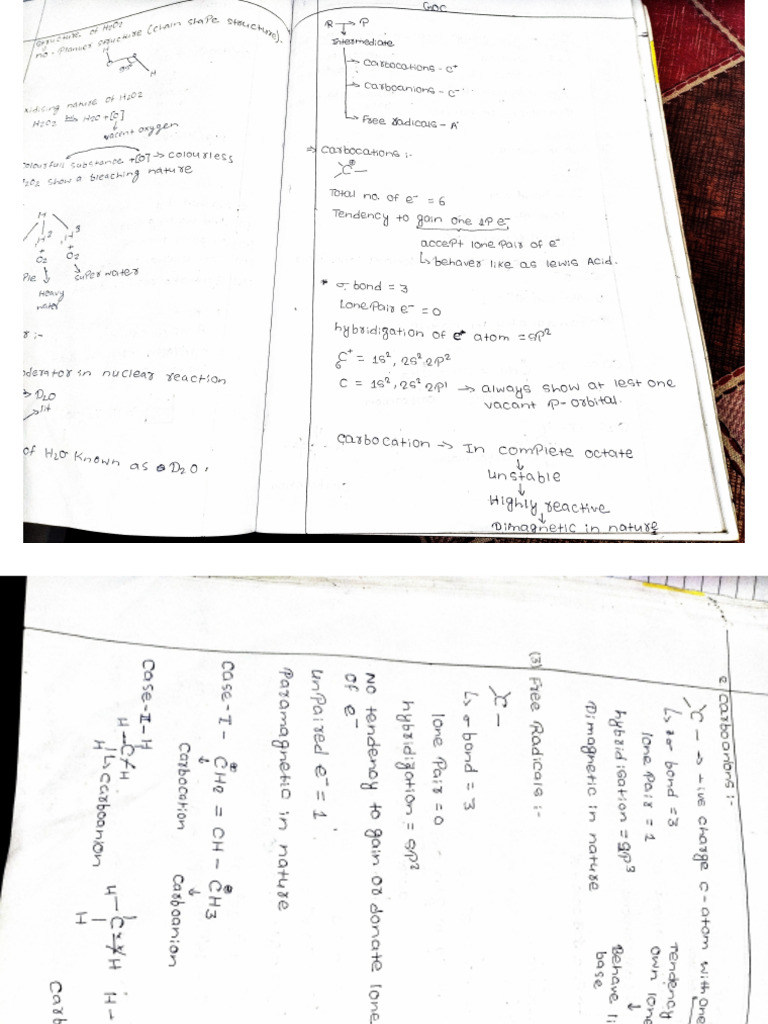 structure of H2O2
no. Planner structure (chain shape structure).
H
O
90°
H
oxidizing nature of H2O2
H2O2 ⇌ H2O + [O]
vacent oxygen
colourfull substance + [O] → colourless
H2O2 show a bleaching nature
H
H2 H3
+ +
O2 O2
super water
Heavy
water
r :-
moderator in nuclear reaction
→ D2O
of H2O known as D2O,
GOC
R → P
Intermediate
→ carbocations - C+
→ carboanions - C-
→ Free radicals - A
⇒ carbocations :-
C⊕ -
Total no. of e- = 6
Tendency to gain one lP e-
accept lone pair of e-
↳ behaver like as lewis Acid.
* σ bond = 3
Lone Pair e- = 0
hybridization of C+ atom = sp2
6C+ = 1s2, 2s2 2p2
C = 1s2, 2s2 2p1 → always show at lest one
vacant P-orbital.
carbocation → In complete octate
↓
unstable
↓
Highly reactive
↓
Dimagnetic in nature
2 carboanions :-
C - → +ive charge C-atom with one
↳ σ bond = 3 Tendency
lone pair = 1 own lone
hybridisation = sp3 ↓
Behave li
Dimagnetic in nature base
(3) Free Radicals :-
C -
↳ σ bond = 3
lone pair = 0
hybridization = sp2
No tendency to gain or donate lone
of e-
unpaired e- = 1
Paramagnetic in nature
case - I - ⊕CH2 = CH - ⊖CH3
↓ ↓
carbocation carboanion
case - II - H
H - C / H H - C / H H -
H ↳ carboanion H
carb